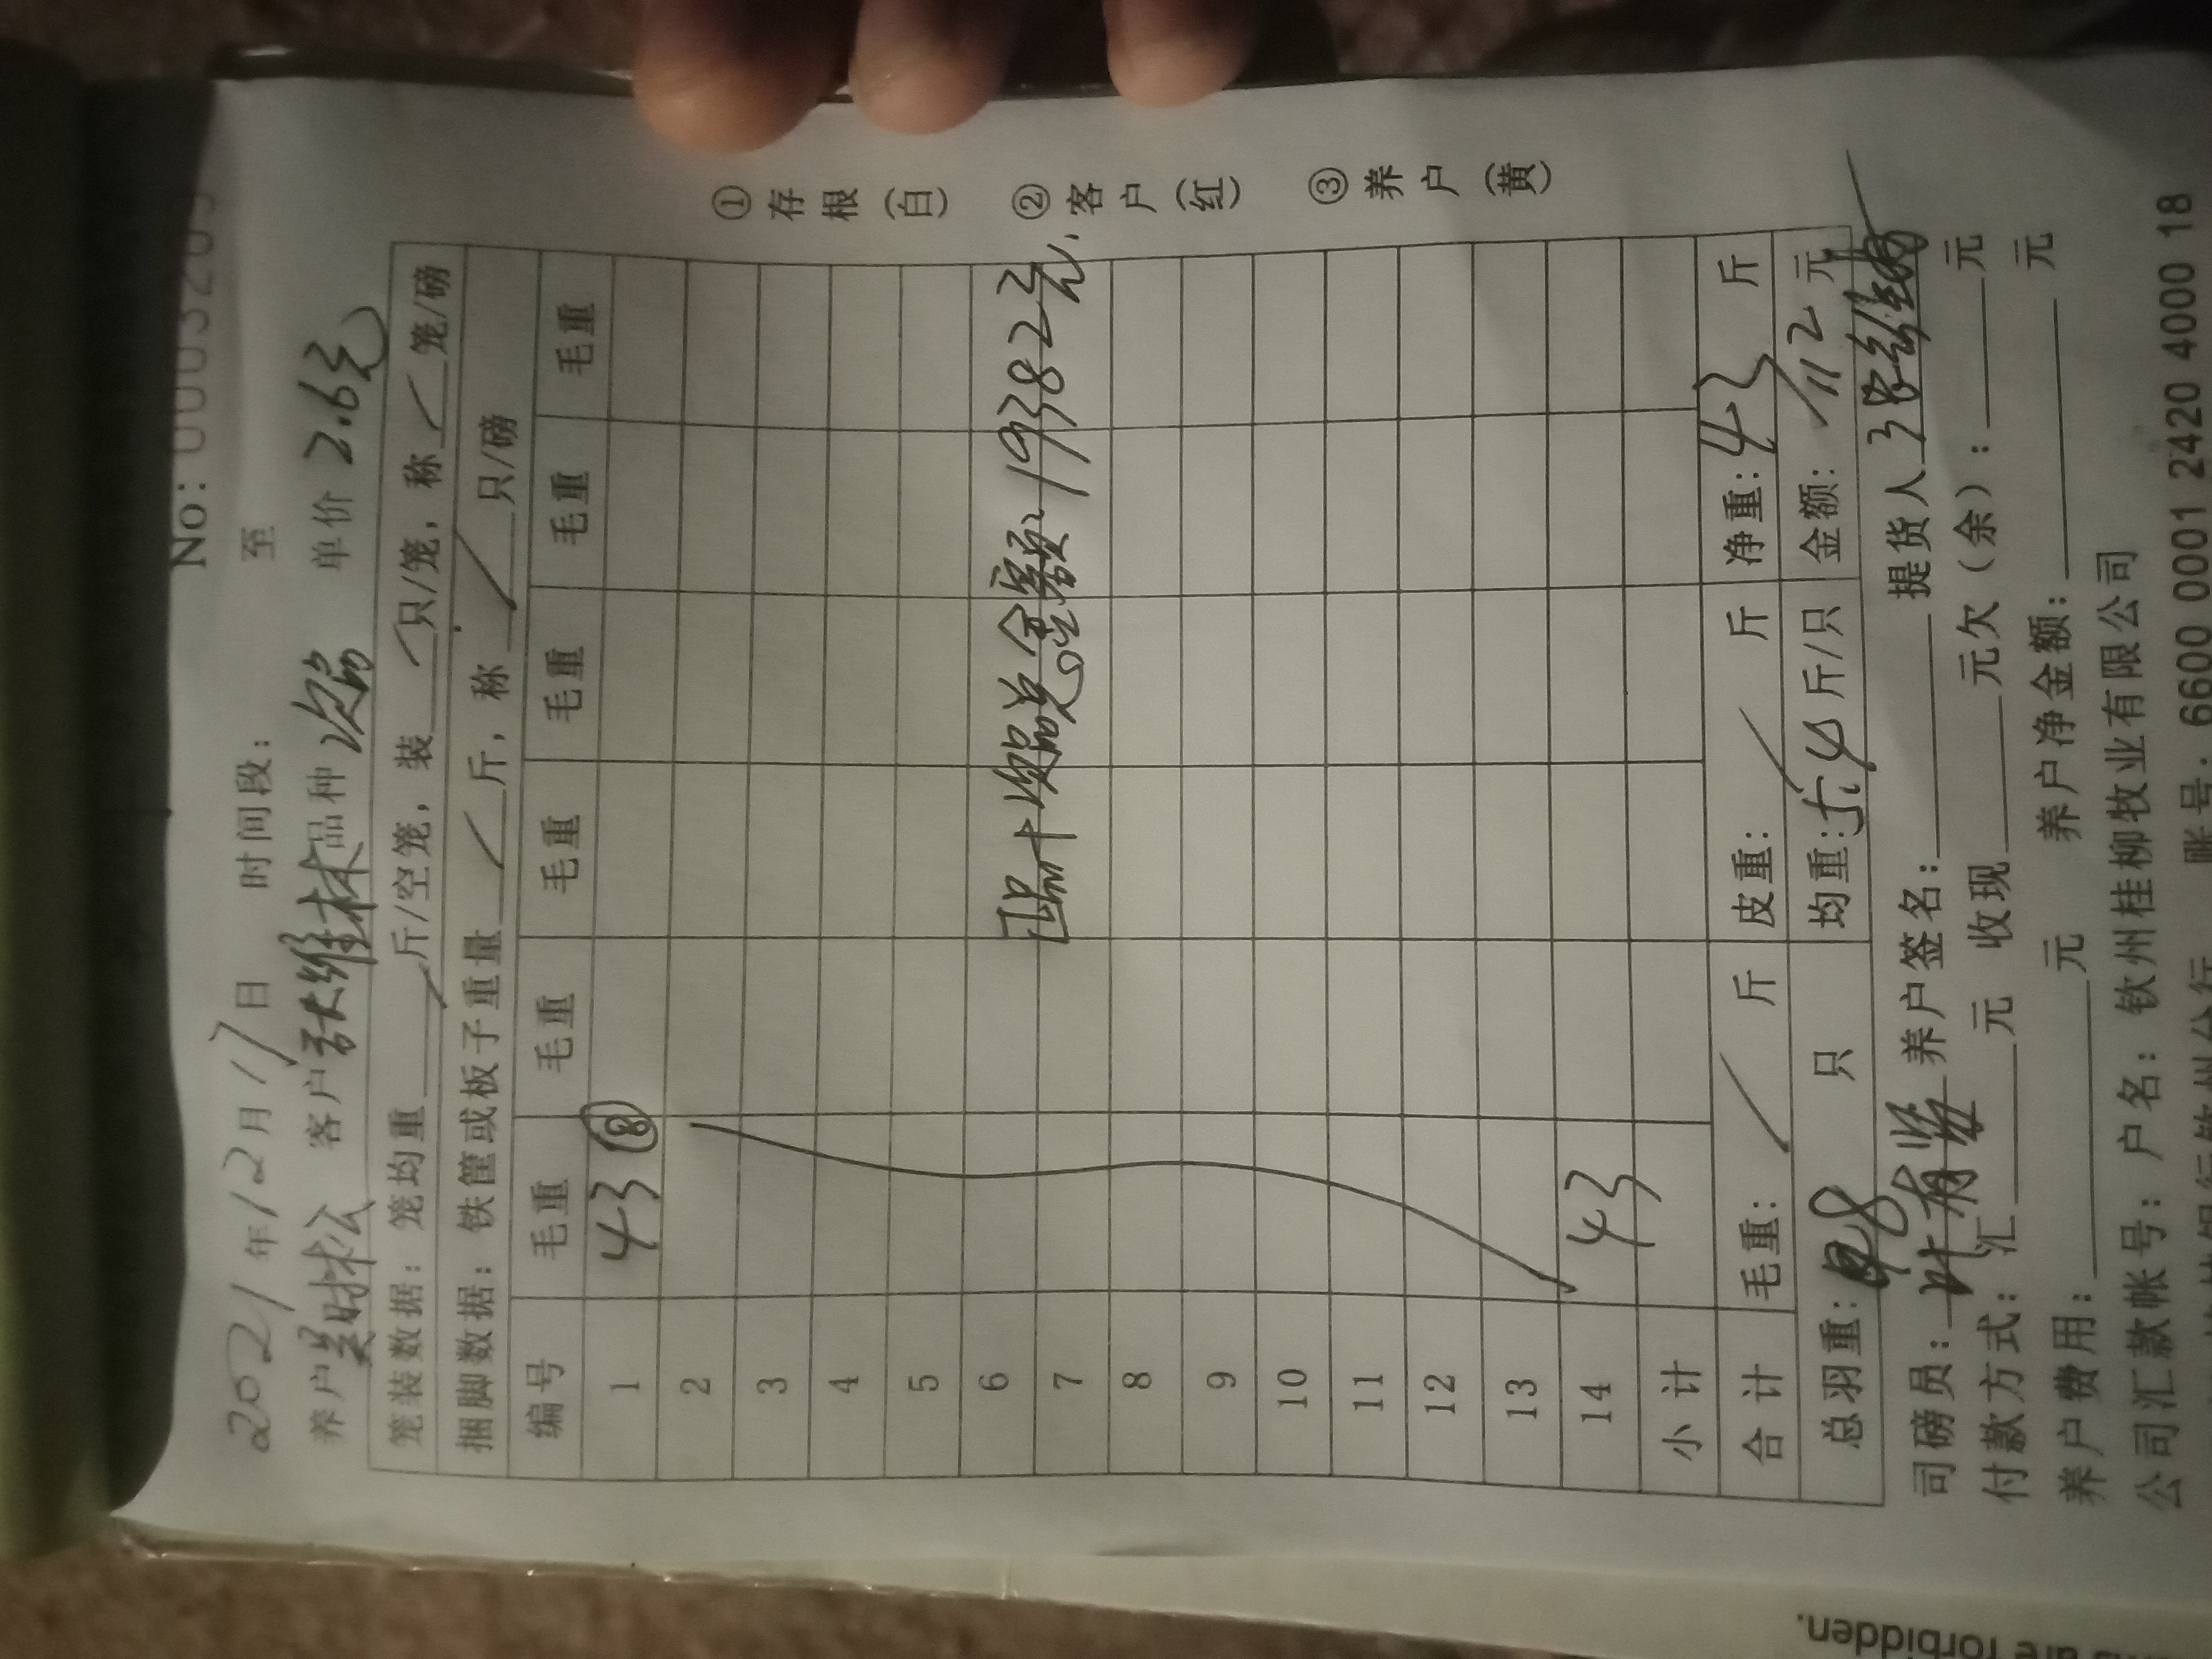 No: 0003203
2021年12月17日 时间段: 至
养户 客户 张维林 品种 次品 单价 2.6元
笼装数据: 笼均重 斤/空笼, 装 只/笼, 称 笼/磅
捆脚数据: 铁筐或板子重量 斤, 称 只/磅
编号 毛重 毛重 毛重 毛重 毛重 毛重
1 43 ⑧
2
3
4
5
6
7 正品+次品总金额: 19382元.
8
9
10
11
12
13
14 43
小计
合计 毛重: 斤 皮重: 斤 净重: 43 斤
总羽重: 8 只 均重: 5.4 斤/只 金额: 112元
司磅员: 叶有 养户签名: 提货人
付款方式: 汇 元 收现 元欠(余): 元
养户费用: 元 养户净金额: 元
公司汇款帐号: 户名: 钦州桂柳牧业有限公司
账号: 6600 0001 2420 4000 18
①存根(白) ②客户(红) ③养户(黄)
are forbidden.